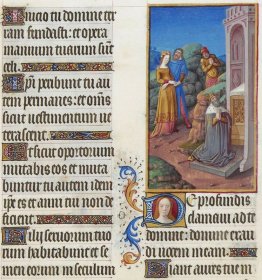 Inicio tu domine ter
ram fundasti: et opera
manuum tuarum sūt
celi.
Ipī peribunt tu au
tem permanes: et om̄s
sicut uestimentum ue
terascent.
Et sicut opertorium
mutabis eos et muta
buntur tu autem idem
ipse es et anni tui non de
ficient.
Filij seruorum tuo
rum habitabunt et se
men eorum in seculum
De profundis
clamaui ad te
domine: domine exau
di uocem meam.